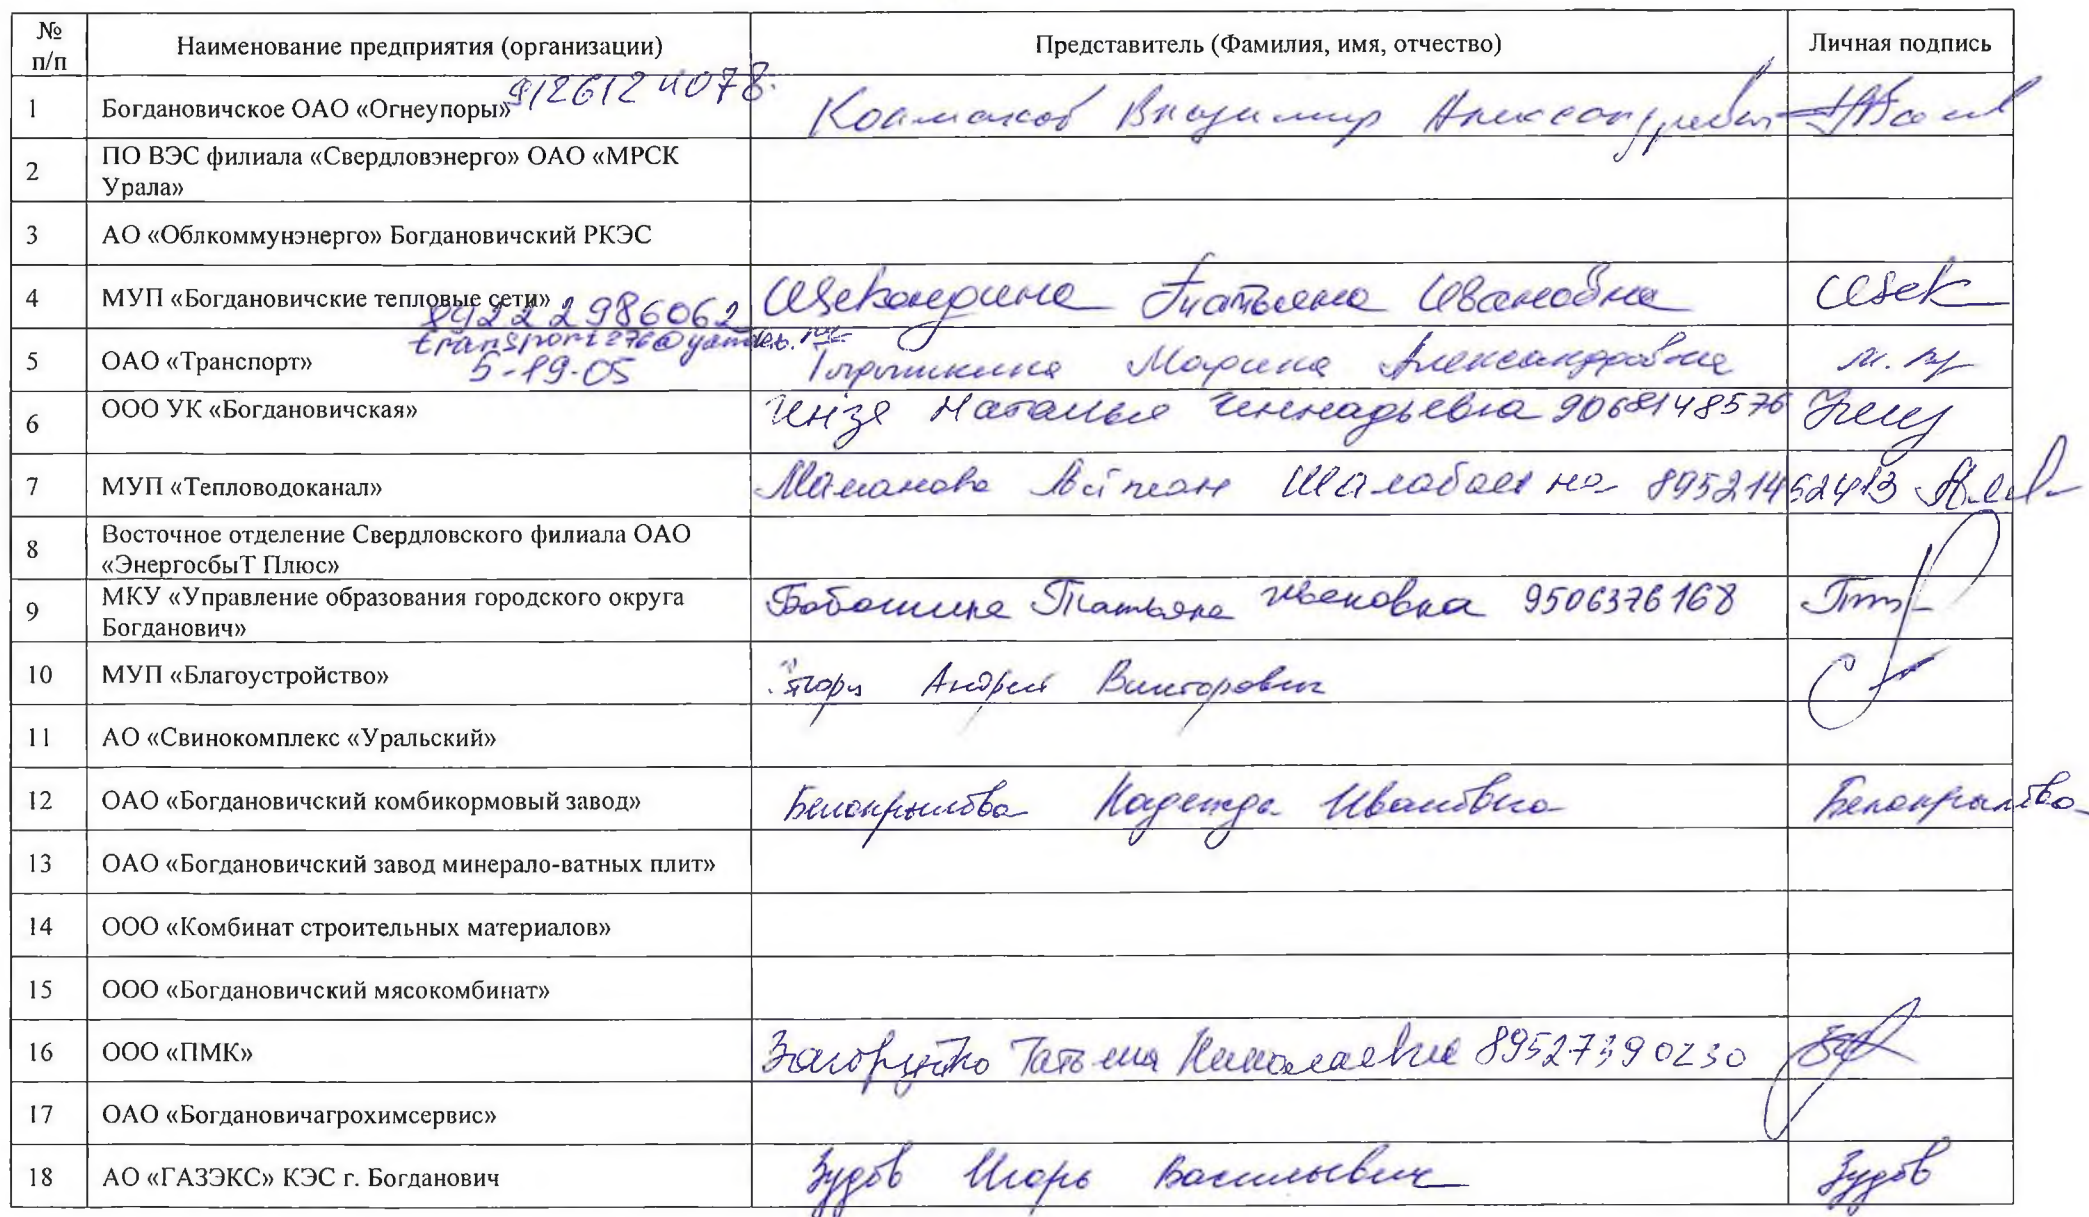 № п/п Наименование предприятия (организации) Представитель (Фамилия, имя, отчество) Личная подпись
9126124078
1 Богдановичское ОАО «Огнеупоры» Колмаков Владимир Александрович
2 ПО ВЭС филиала «Свердловэнерго» ОАО «МРСК
Урала»
3 АО «Облкоммунэнерго» Богдановичский РКЭС
4 МУП «Богдановичские тепловые сети» Татьяна Ивановна
89222986062
transport276@yandex.ru
5 ОАО «Транспорт» Марина Александровна
5-19-05
6 ООО УК «Богдановичская» Наталья Геннадьевна 9068148576
7 МУП «Тепловодоканал» 89521452413
8 Восточное отделение Свердловского филиала ОАО
«ЭнергосбыТ Плюс»
9 МКУ «Управление образования городского округа
Богданович» Татьяна Ивановна 9506376168
10 МУП «Благоустройство» Андрей Викторович
11 АО «Свинокомплекс «Уральский»
12 ОАО «Богдановичский комбикормовый завод» Белокрылова Надежда Ивановна Белокрылова
13 ОАО «Богдановичский завод минерало-ватных плит»
14 ООО «Комбинат строительных материалов»
15 ООО «Богдановичский мясокомбинат»
16 ООО «ПМК» Загорулько Татьяна Николаевна 89527390230
17 ОАО «Богдановичагрохимсервис»
18 АО «ГАЗЭКС» КЭС г. Богданович Зудов Игорь Васильевич Зудов